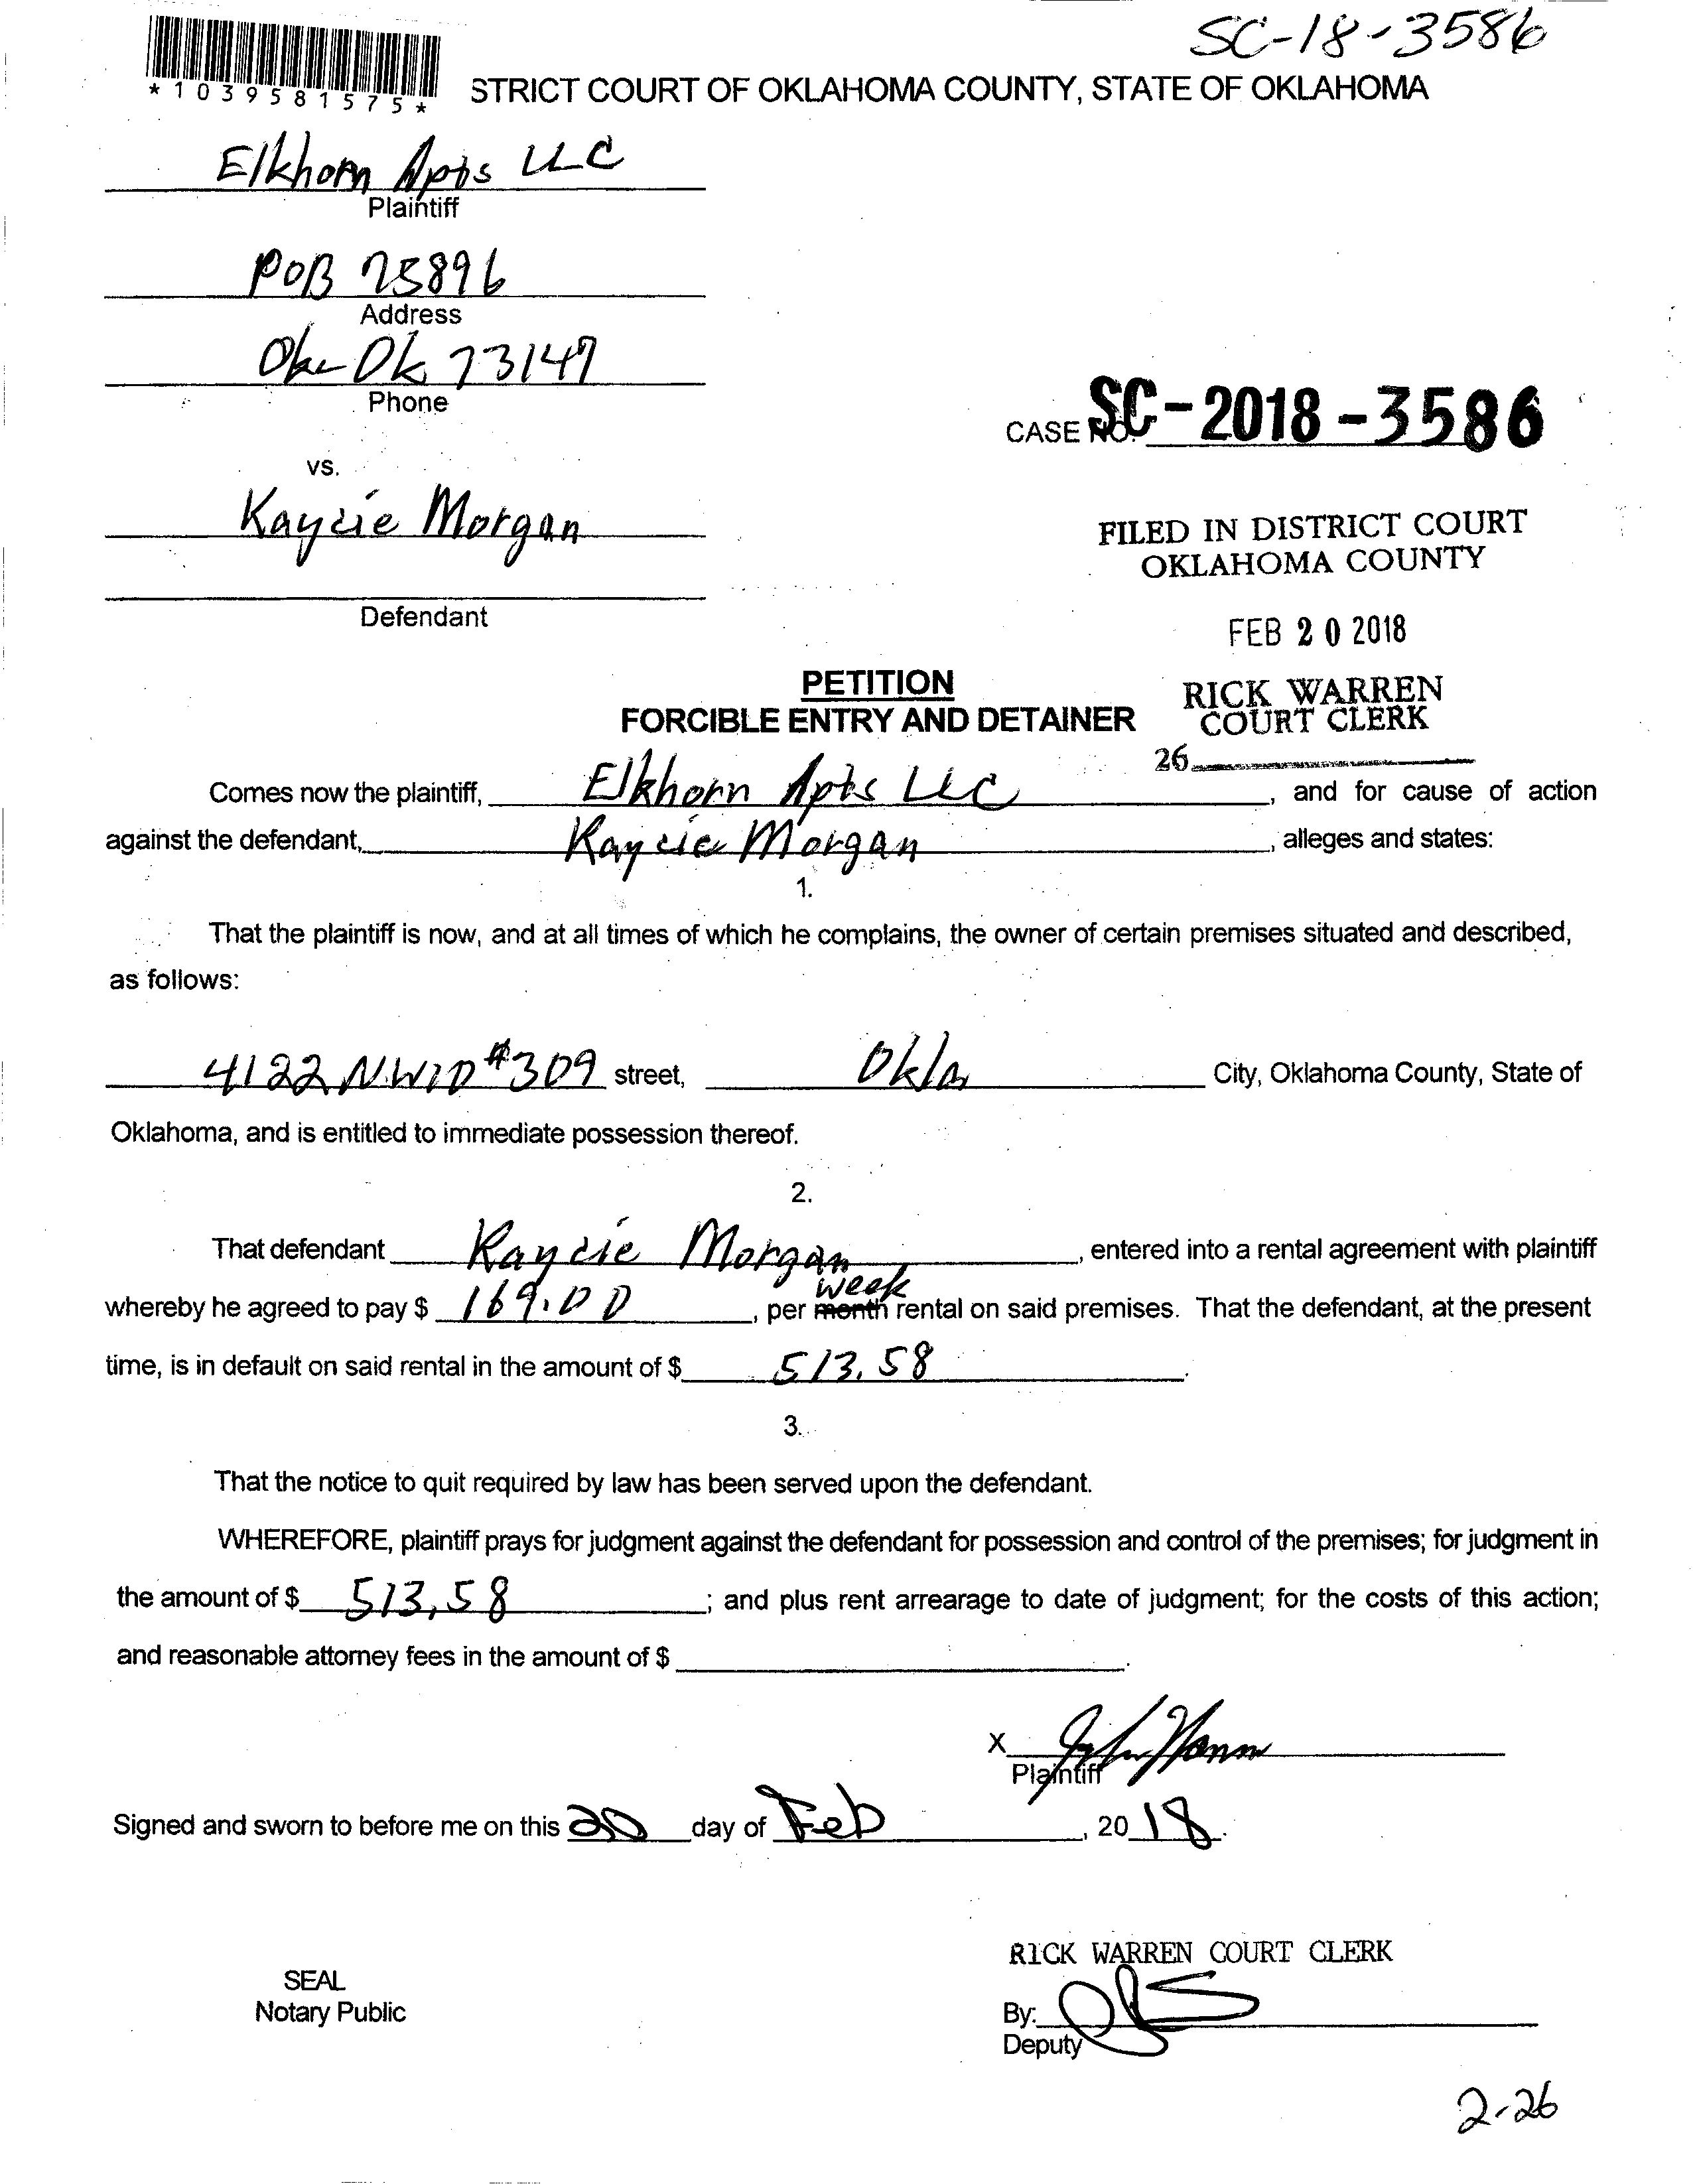 SC-18-3586
*1039581575*
STRICT COURT OF OKLAHOMA COUNTY, STATE OF OKLAHOMA
Elkhorn Apts LLC
Plaintiff
POB 75896
Address
Okc Ok 73147
Phone
CASE NO. SC-2018-3586
vs.
Kaycie Morgan
FILED IN DISTRICT COURT
OKLAHOMA COUNTY
Defendant
FEB 20 2018
PETITION
FORCIBLE ENTRY AND DETAINER
RICK WARREN
COURT CLERK
26
Comes now the plaintiff, Elkhorn Apts LLC, and for cause of action
against the defendant, Kaycie Morgan, alleges and states:
1.
That the plaintiff is now, and at all times of which he complains, the owner of certain premises situated and described,
as follows:
4122 NW10 #309 street, Okla City, Oklahoma County, State of
Oklahoma, and is entitled to immediate possession thereof.
2.
That defendant Kaycie Morgan, entered into a rental agreement with plaintiff
week
whereby he agreed to pay $ 169.00, per month rental on said premises. That the defendant, at the present
time, is in default on said rental in the amount of $ 513.58.
3.
That the notice to quit required by law has been served upon the defendant.
WHEREFORE, plaintiff prays for judgment against the defendant for possession and control of the premises; for judgment in
the amount of $ 513.58; and plus rent arrearage to date of judgment; for the costs of this action;
and reasonable attorney fees in the amount of $ .
X
Plaintiff
Signed and sworn to before me on this 20 day of Feb, 2018.
RICK WARREN COURT CLERK
SEAL
Notary Public
By:
Deputy
2-26